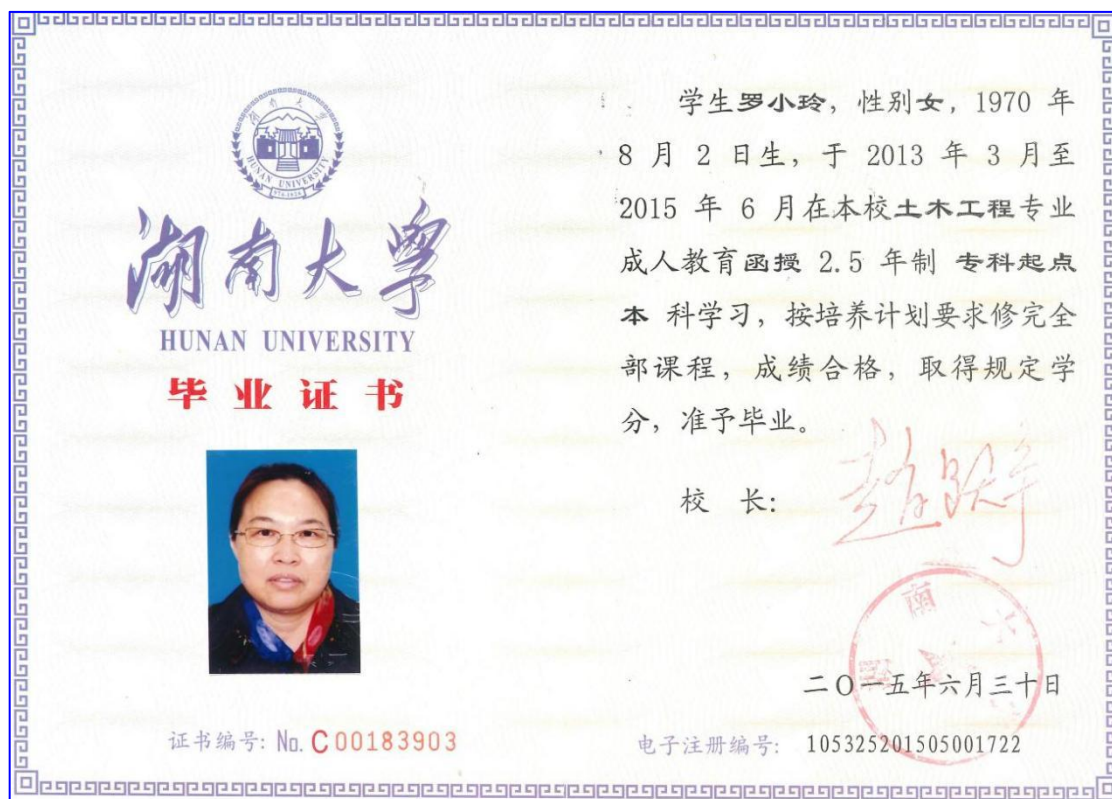 湖南大学
HUNAN UNIVERSITY
湖南大学
HUNAN UNIVERSITY
毕业证书
证书编号: No. C 00183903
学生罗小玲，性别女，1970 年
8 月 2 日生，于 2013 年 3 月至
2015 年 6 月在本校土木工程专业
成人教育函授 2.5 年制 专科起点
本 科学习，按培养计划要求修完全
部课程，成绩合格，取得规定学
分，准予毕业。
校 长:
二O一五年六月三十日
电子注册编号: 105325201505001722